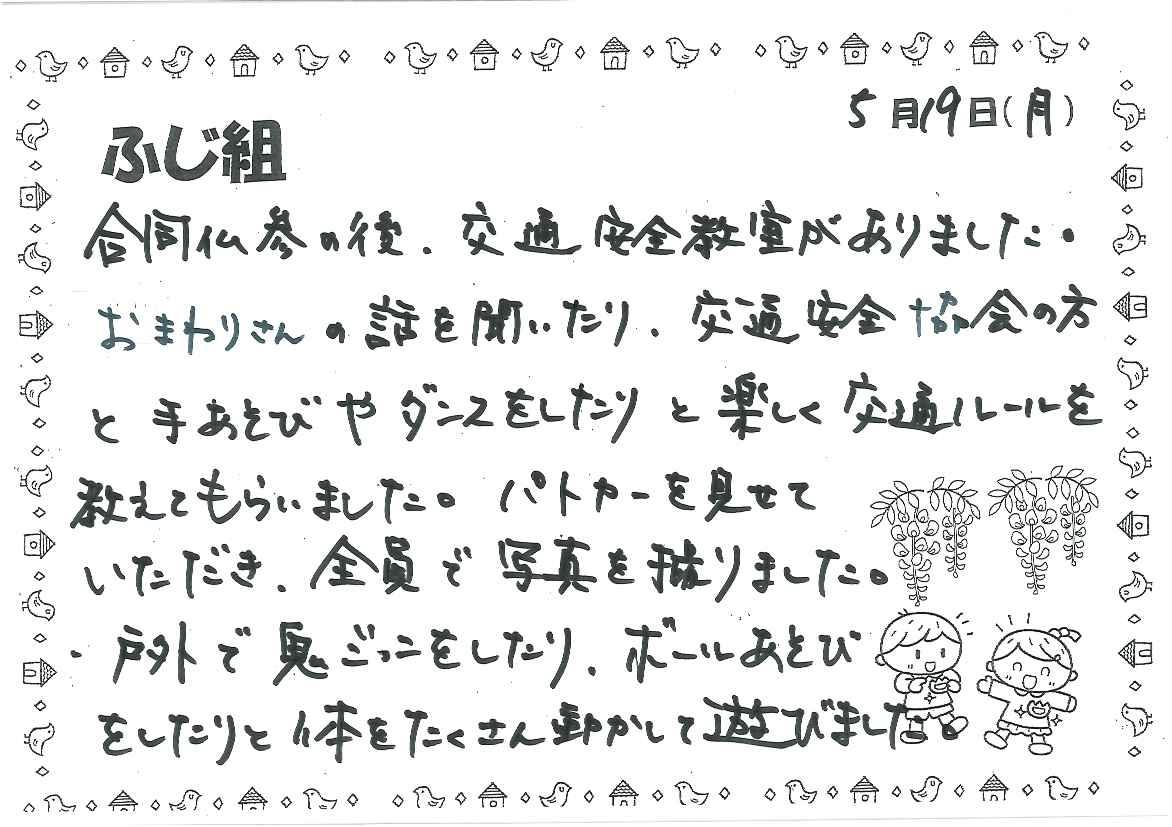 5月19日(月)
ふじ組
合同仏参の後、交通安全教室がありました。
おまわりさんの話を聞いたり、交通安全協会の方
と手あそびやダンスをしたりと楽しく交通ルールを
教えてもらいました。パトカーを見せて
いただき、全員で写真を撮りました。
・戸外で鬼ごっこをしたり、ボールあそび
をしたりと体をたくさん動かして遊びました。